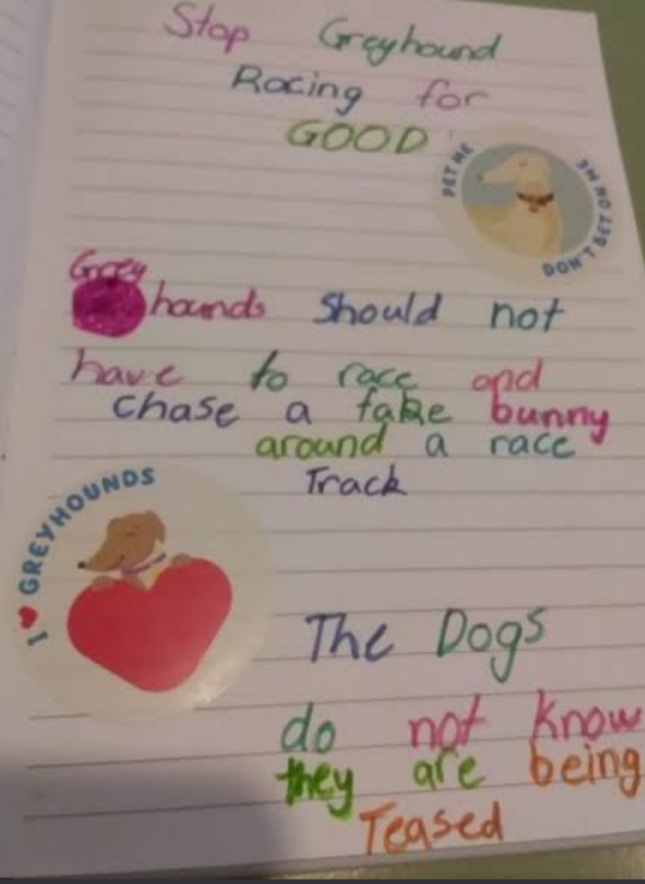 Stop Greyhound
Racing for
GOOD
PET ME
DON'T BET ON ME
Grey
hounds should not
have to race and
chase a fake bunny
around a race
Track
I ❤ GREYHOUNDS
The Dogs
do not know
they are being
Teased